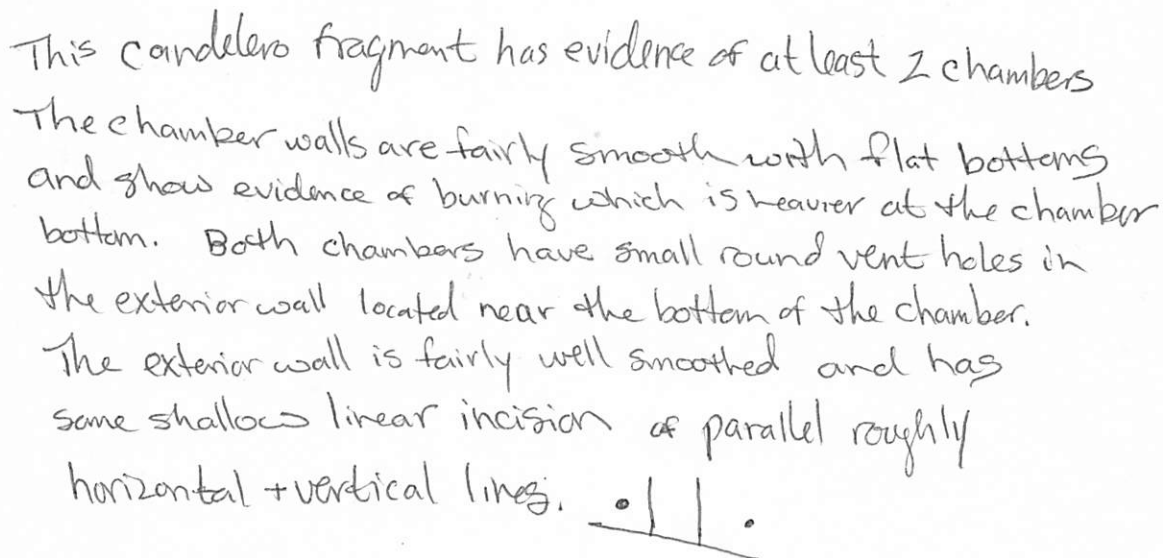 This candelero fragment has evidence of at least 2 chambers
The chamber walls are fairly smooth with flat bottoms
and show evidence of burning which is heavier at the chamber
bottom. Both chambers have small round vent holes in
the exterior wall located near the bottom of the chamber.
The exterior wall is fairly well smoothed and has
some shallow linear incision of parallel roughly
horizontal + vertical lines.